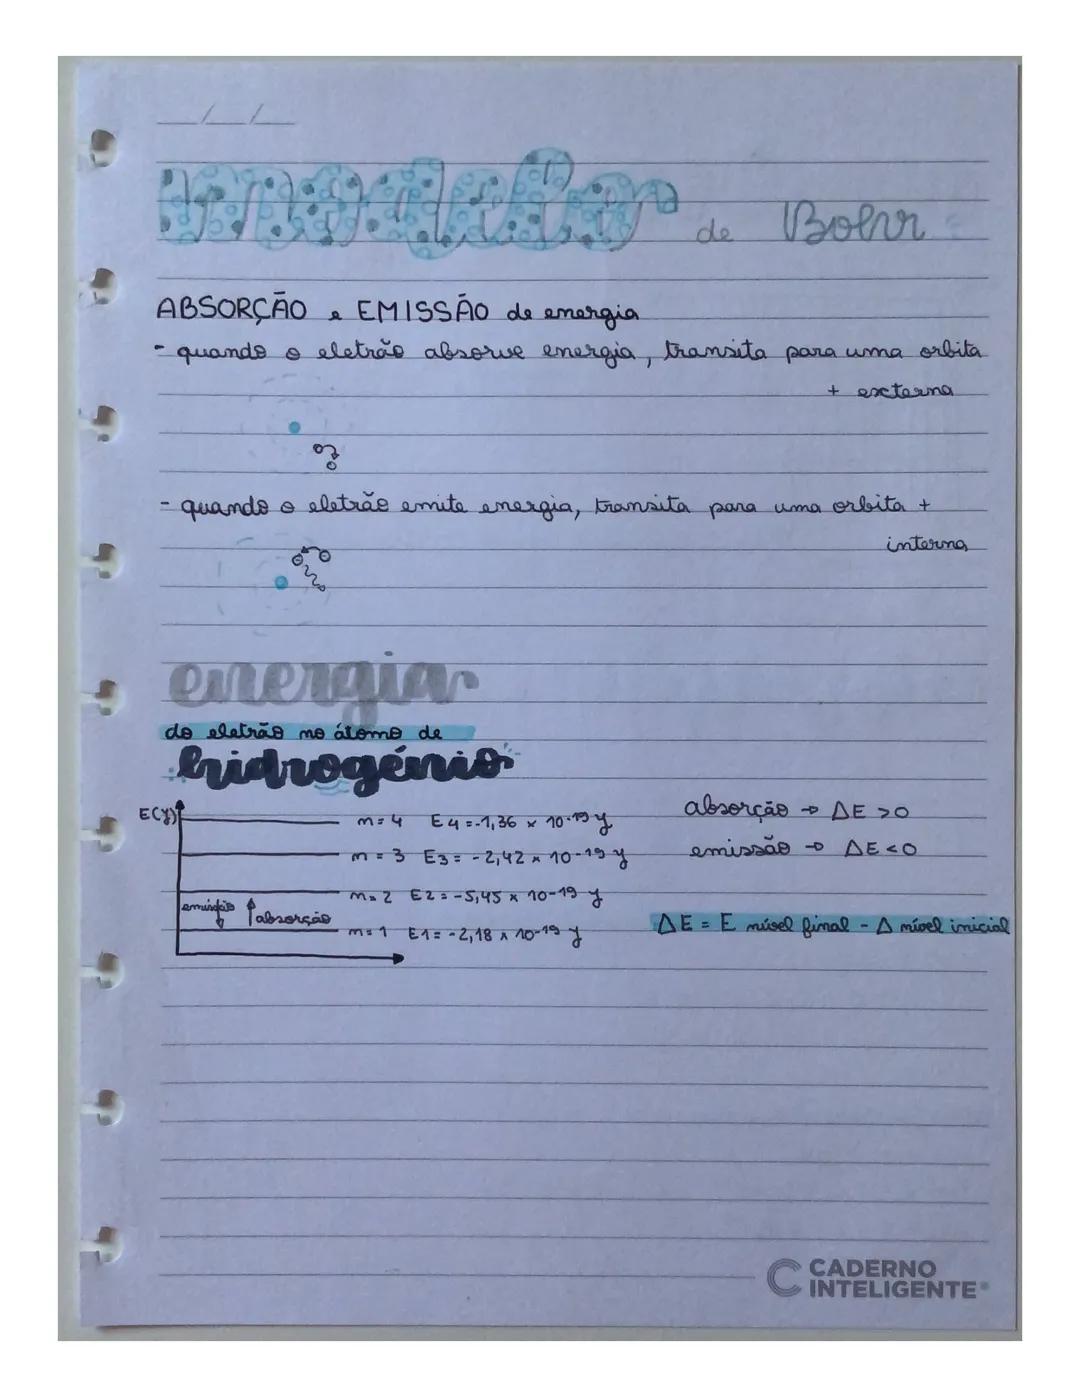 __/__/__
modelo de Bohr
ABSORÇÃO e EMISSÃO de energia
- quando o eletrão absorve energia, transita para uma orbita
+ externa
- quando o eletrão emite energia, transita para uma orbita +
interna
energia
do eletrão no átomo de
hidrogénio
E(J)
n=4 E4=-1,36 x 10-19 J
absorção → ΔE >0
n=3 E3= -2,42 x 10-19 J
emissão → ΔE<0
n=2 E2=-5,45 x 10-19 J
emissão absorção
n=1 E1= -2,18 x 10-19 J
ΔE = E nível final - Δ nível inicial
CADERNO
INTELIGENTE®